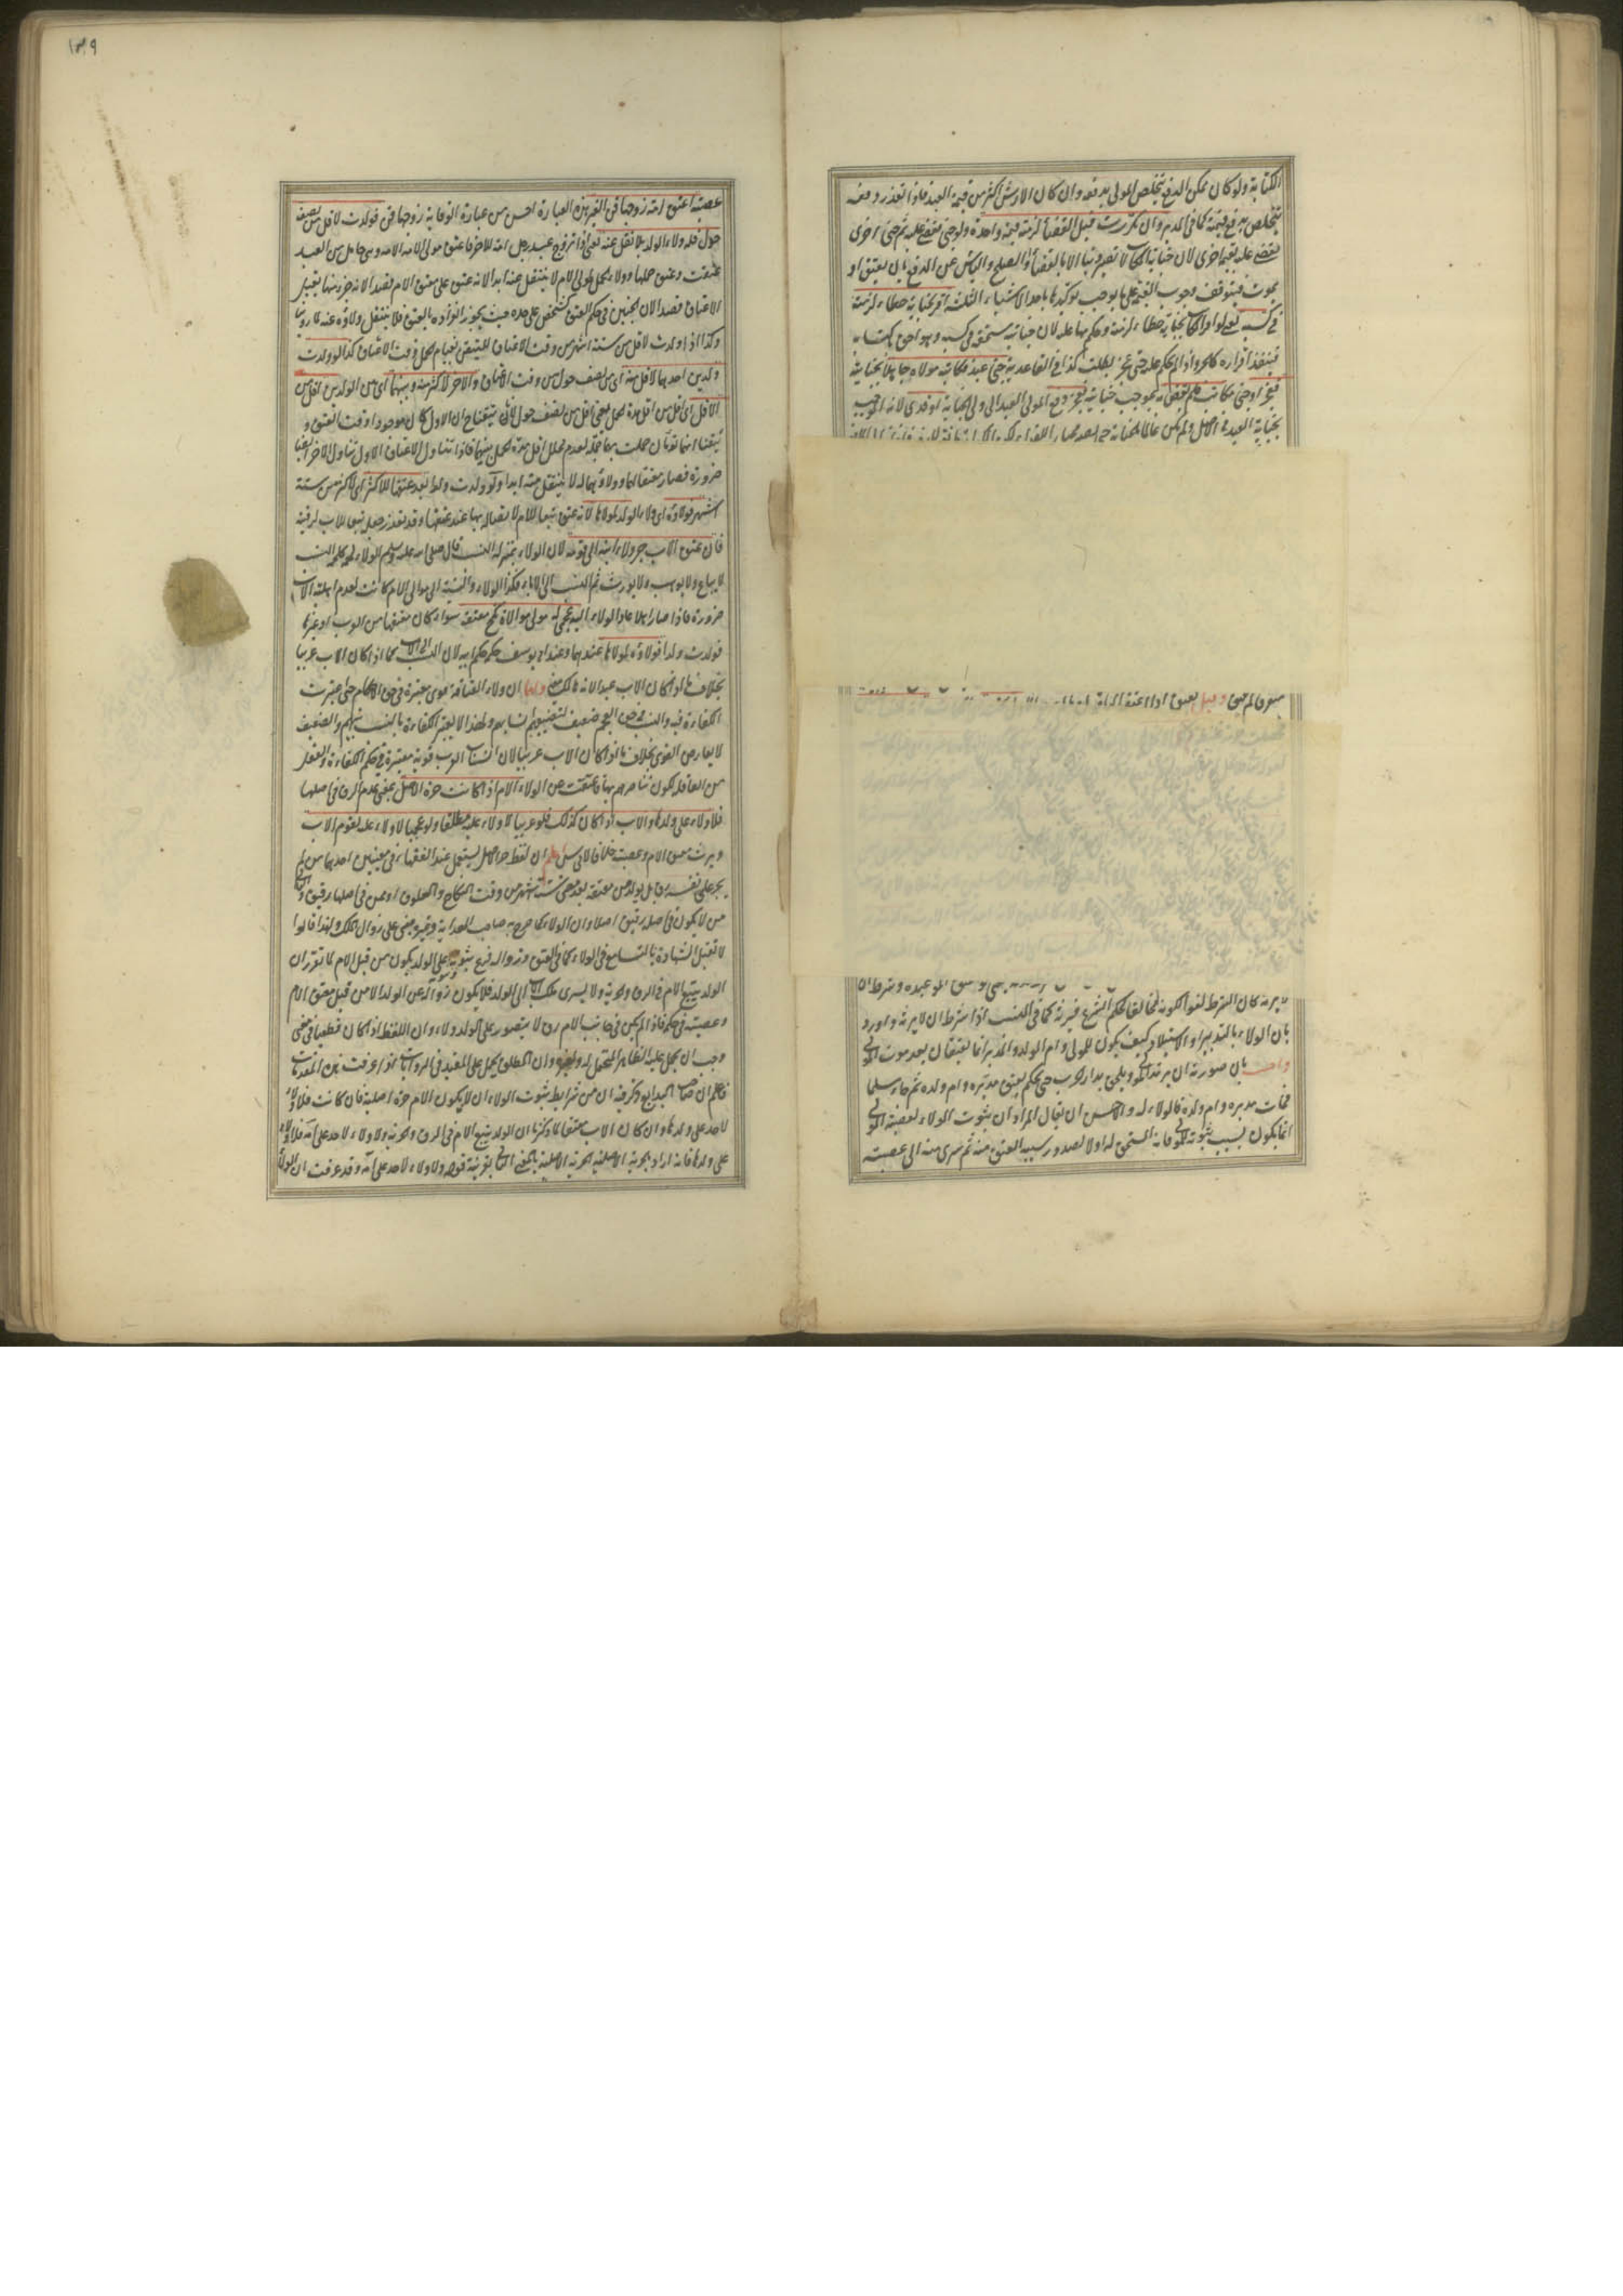 الكتابة ولو كان ممكن الدفع يتخلص المولى بدفعه وان كان الارش اكثر من قيمة العبد فاذا تعذر دفعه
يتخلص بدفع قيمته كما في المدبر وان تكررت قبل القضاء لزمته قيمة واحدة ولو جنى فقضي عليه ثم جنى اخرى
يقضى عليه بقيمة اخرى لان جناية المكاتب لا تصير دينا الا بالقضاء او الصلح او اليأس عن الدفع بان يعتق او
يموت فيتوقف وجوب القيمة على ما يوجب توكيدها باحد الاشياء الثلثة اقر بجناية خطاء لزمته
في كسبه يعني لو اقر المكاتب بجناية خطاء لزمته وحكم بها عليه لان جنايته مستحقة في كسبه وهو احق باكتسابه
فينفذ اقراره كالحر واذا لم يحكم عليه حتى عجز بطلت كذا في القاعدية جنى عبد فكاتبه مولاه جاهلا بجنايته
فعجز او جنى مكاتب فلم يقض به بموجب جنايته فعجز دفع المولى العبد الى ولي الجناية او فدى لانه الموجب
بجناية العبد في الاصل ولم يكن عالما بالجناية حتى يصير مختارا للفداء
وقيل يعتق
يرثه كان الشرط لغوا لكونه مخالفا لحكم الشرع فيرثه كما في النسب اذا شرط ان لا يرثه واورد
بان الولاء بالتدبير او الاستيلاد كيف يكون للمولى وام الولد والمدبر انما يعتقان بعد موت المولى
واجيب بان صورته ان يرتد المولى ويلحق بدار الحرب حتى يحكم بعتق مدبره وام ولده ثم جاء مسلما
فمات مدبره وام ولده فالولاء له والاحسن ان يقال المراد ان ثبوت الولاء لعصبة المولى
انما يكون بسبب ثبوته للمولى فانه المستحق له اولا لصدور سبب العتق منه ثم سرى منه الى عصبته
١٣٩
عصبته اعتق امته زوجها قن الغير هذه العبارة احسن من عبارة الوقاية زوجها قن فولدت لاقل من نصف
حول فله ولاء الولد بلا نقل عنه يعني اذا تزوج عبد رجل امة للاخر فاعتق مولى الامة الامة وهي حامل من العبد
عتقت وعتق حملها وولاء الحمل لمولى الام لا ينتقل عنه ابدا لانه عتق على معتق الام قصدا لانه جزء منها يقبل
الاعتاق قصدا لان الجنين في حكم العتق كشخص على حدة حيث يجوز افراده بالعتق فلا ينتقل ولاؤه عنه لما روينا
وكذا اذا ولدت لاقل من ستة اشهر من وقت الاعتاق للتيقن بقيام الحمل وقت الاعتاق كذا لو ولدت
ولدين احدهما لاقل منه اي من نصف حول من وقت الاعتاق والاخر لاكثر منه وبينهما اي من الولدين اقل من
الاقل اي اقل من اقل مدة الحمل يعني اقل من نصف حول لانا تيقنا ح ان الاول كان موجودا وقت العتق و
تيقنا انهما توأمان حملت بهما جملة لعدم تخلل اقل مدة الحمل بينهما فاذا تناول الاعتاق الاول تناول الاخر ايضا
ضرورة فصار معتقا لهما وولاؤهما له لا ينتقل منه ابدا ولو ولدت ولدا بعد عتقها للاكثر اي لاكثر من ستة
اشهر فولاؤه اي ولاء الولد لمولاها لانه عتق تبعا للام لاتصاله بها عند عتقها وقد تعذر جعله تبعا للاب لرقيته
فان عتق الاب جر ولاء ابنه الى قومه لان الولاء بمنزلة النسب قال صلى الله عليه وسلم الولاء لحمة كلحمة النسب
لا يباع ولا يوهب ولا يورث ثم النسب الى الاباء فكذا الولاء والنسبة الى موالي الام كانت لعدم اهلية الاب
ضرورة فاذا صار اهلا عاد الولاء اليه عجمي له مولى موالاة نكح معتقة سواء كان معتقها من العرب او غيرها
فولدت ولدا فولاؤه لمولاها عندهما وعند ابي يوسف حكمه حكم ابيه لان النسب الى الاب كما اذا كان الاب عربيا
بخلاف ما اذا كان الاب عبدا لانه هالك معنى ولهما ان ولاء العتاقة قوي معتبرة في حق الاحكام حتى اعتبرت
الكفاءة فيه والنسب في حق العجم ضعيف لتضييعهم انسابهم ولهذا لا يعتبر الكفاءة بالنسب فيهم والضعيف
لا يعارض القوي بخلاف ما اذا كان الاب عربيا لان انساب العرب قوية معتبرة في حكم الكفاءة والعقل
من العاقلة لكون تناصرهم بها فاغنت عن الولاء الام اذا كانت حرة الاصل بمعنى عدم الرق في اصلها
فلا ولاء على ولدها والاب اذا كان كذلك فلو عربيا لا ولاء عليه مطلقا ولو عجميا لا ولاء عليه لقوم الاب
ويرث معتق الام وعصبته خلافا لابي يوسف اعلم ان لفظ حر الاصل يستعمل عند الفقهاء في معنيين احدهما من لم
يجر على نفسه رق بل يولد من معتقة بعد مضي ستة اشهر من وقت النكاح والعلوق او ممن في اصلها رقيق والثاني
من لا يكون في اصله رقيق اصلا وان الولاء كما صرح به صاحب الهداية وغيره مبني على زوال الملك ولهذا قالوا
لا تقبل الشهادة بالتسامع في الولاء كما في العتق وزواله فرع ثبوته وثبوته على الولد يكون من قبل الام لما تقرر ان
الولد يتبع الام في الرق والحرية ولا يسري ملك الاب الى الولد فلا يكون زواله عن الولد الا من قبل معتق الام
وعصبته في حكمه فاذا لم يكن في جانب الام رق لا يتصور على الولد ولاء وان اللفظ اذا كان قطعيا في معنى
وجب ان يحمل عليه الظاهر المحتمل له ولغيره وان المطلق يحمل على المقيد في الروايات اذا عرفت هذه المقدمات
فاعلم ان صاحب البدايع ذكر فيه ان من شرايط ثبوت الولاء ان لا يكون الام حرة اصلية فان كانت فلا ولاء
لاحد على ولدها وان كان الاب معتقا لما ذكرنا ان الولد يتبع الام في الرق والحرية ولا ولاء لاحد على امه فلا ولاء
على ولدها فانه اراد بالحرية الاصلية الحرية الاصلية بالمعنى الثاني بقرينة قوله ولا ولاء لاحد على امه وقد عرفت ان الولاء